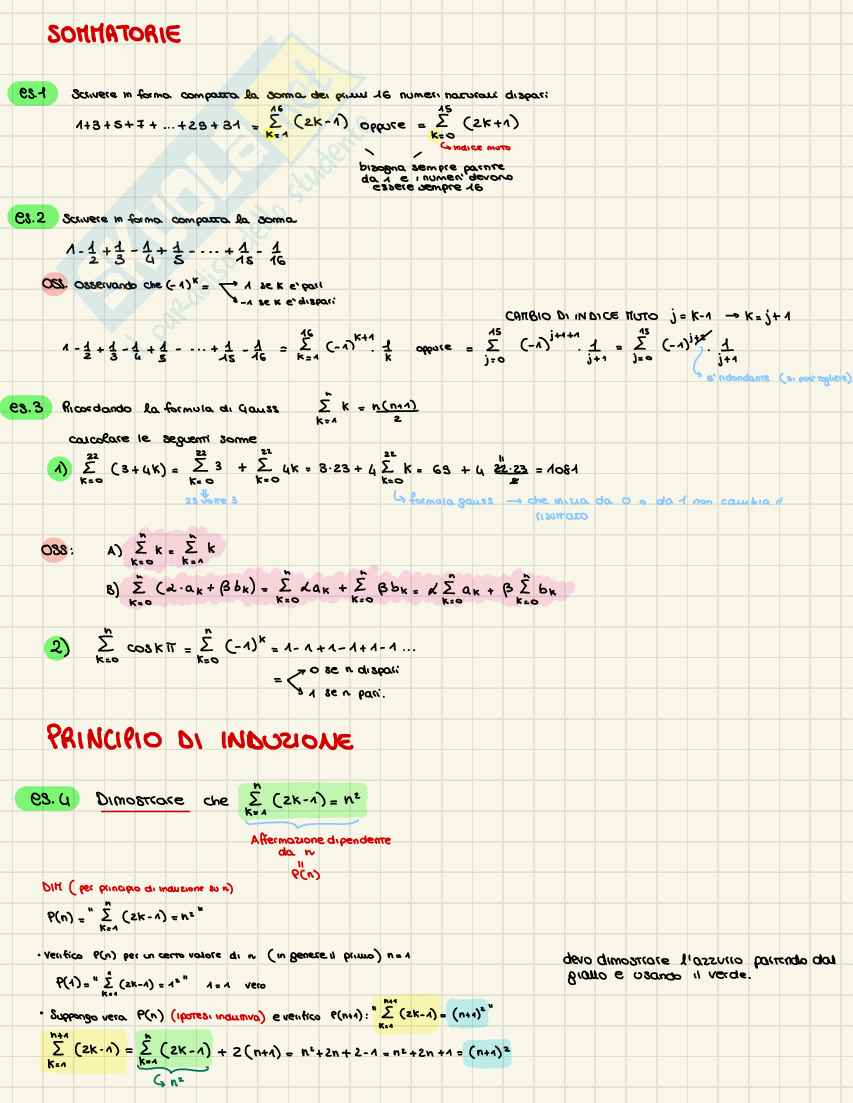 SOMMATORIE
es.1 Scrivere in forma compatta la somma dei primi 16 numeri naturali dispari
1+3+5+7+...+29+31 = ∑_{k=1}^{16} (2k-1) oppure = ∑_{k=0}^{15} (2k+1)
↪ indice muto
bisogna sempre partire
da 1 e i numeri devono
essere sempre 16
es.2 Scrivere in forma compatta la somma
1 - 1/2 + 1/3 - 1/4 + 1/5 - ... + 1/15 - 1/16
OSS. Osservando che (-1)^k = → 1 se k e' pari
→ -1 se k e' dispari
CAMBIO DI INDICE MUTO j = k-1 → k = j+1
1 - 1/2 + 1/3 - 1/4 + 1/5 - ... + 1/15 - 1/16 = ∑_{k=1}^{16} (-1)^{k+1} · 1/k oppure = ∑_{j=0}^{15} (-1)^{j+1+1} · 1/(j+1) = ∑_{j=0}^{15} (-1)^{j+2} · 1/(j+1)
e' ridondante (si puo' togliere)
es.3 Ricordando la formula di Gauss ∑_{k=1}^{n} k = n(n+1)/2
calcolare le seguenti somme
1) ∑_{k=0}^{22} (3+4k) = ∑_{k=0}^{22} 3 + ∑_{k=0}^{22} 4k = 3·23 + 4 ∑_{k=0}^{22} k = 69 + 4 22·23/2 = 1081
23 volte 3
↪ formula gauss → che inizia da 0 o da 1 non cambia il
risultato
OSS: A) ∑_{k=0}^{n} k = ∑_{k=1}^{n} k
B) ∑_{k=0}^{n} (α·a_k + β b_k) = ∑_{k=0}^{n} α a_k + ∑_{k=0}^{n} β b_k = α ∑_{k=0}^{n} a_k + β ∑_{k=0}^{n} b_k
2) ∑_{k=0}^{n} cos kπ = ∑_{k=0}^{n} (-1)^k = 1-1+1-1+1-1...
= → 0 se n dispari
→ 1 se n pari.
PRINCIPIO DI INDUZIONE
es.4 Dimostrare che ∑_{k=1}^{n} (2k-1) = n²
Affermazione dipendente
da n
=
P(n)
DIM (per principio di induzione su n)
P(n) = " ∑_{k=1}^{n} (2k-1) = n² "
· Verifico P(n) per un certo valore di n (in genere il primo) n=1
P(1) = " ∑_{k=1}^{1} (2k-1) = 1² " 1=1 vero
devo dimostrare l'azzurro partendo dal
giallo e usando il verde.
· Suppongo vera P(n) (ipotesi induttiva) e verifico P(n+1): " ∑_{k=1}^{n+1} (2k-1) = (n+1)² "
∑_{k=1}^{n+1} (2k-1) = ∑_{k=1}^{n} (2k-1) + 2(n+1) = n²+2n+2-1 = n²+2n+1 = (n+1)²
↪ n²
SKUOLA.net
paradiso dello studente